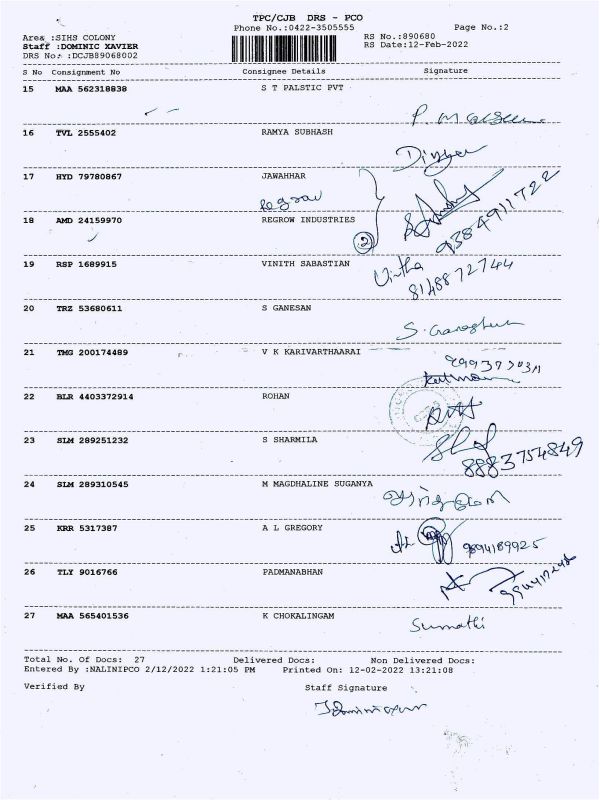 TPC/CJB DRS - PCO
Phone No.:0422-3505555 Page No.:2
Area :SIHS COLONY RS No.:890680
Staff :DOMINIC XAVIER RS Date:12-Feb-2022
DRS No.: :DCJB89068002
S No Consignment No Consignee Details Signature
15 MAA 562318838 S T PALSTIC PVT
16 TVL 2555402 RAMYA SUBHASH
17 HYD 79780867 JAWAHHAR
Regrow
18 AMD 24159970 REGROW INDUSTRIES
2
9384911722
19 RSP 1689915 VINITH SABASTIAN
Vintha
8148872744
20 TRZ 53680611 S GANESAN
21 TMG 200174489 V K KARIVARTHAARAI
22 BLR 4403372914 ROHAN
23 SLM 289251232 S SHARMILA
8883754849
24 SLM 289310545 M MAGDHALINE SUGANYA
25 KRR 5317387 A L GREGORY
9894189925
26 TLY 9016766 PADMANABHAN
27 MAA 565401536 K CHOKALINGAM
Sumathi
Total No. Of Docs: 27 Delivered Docs: Non Delivered Docs:
Entered By :NALINIPCO 2/12/2022 1:21:05 PM Printed On: 12-02-2022 13:21:08
Verified By Staff Signature